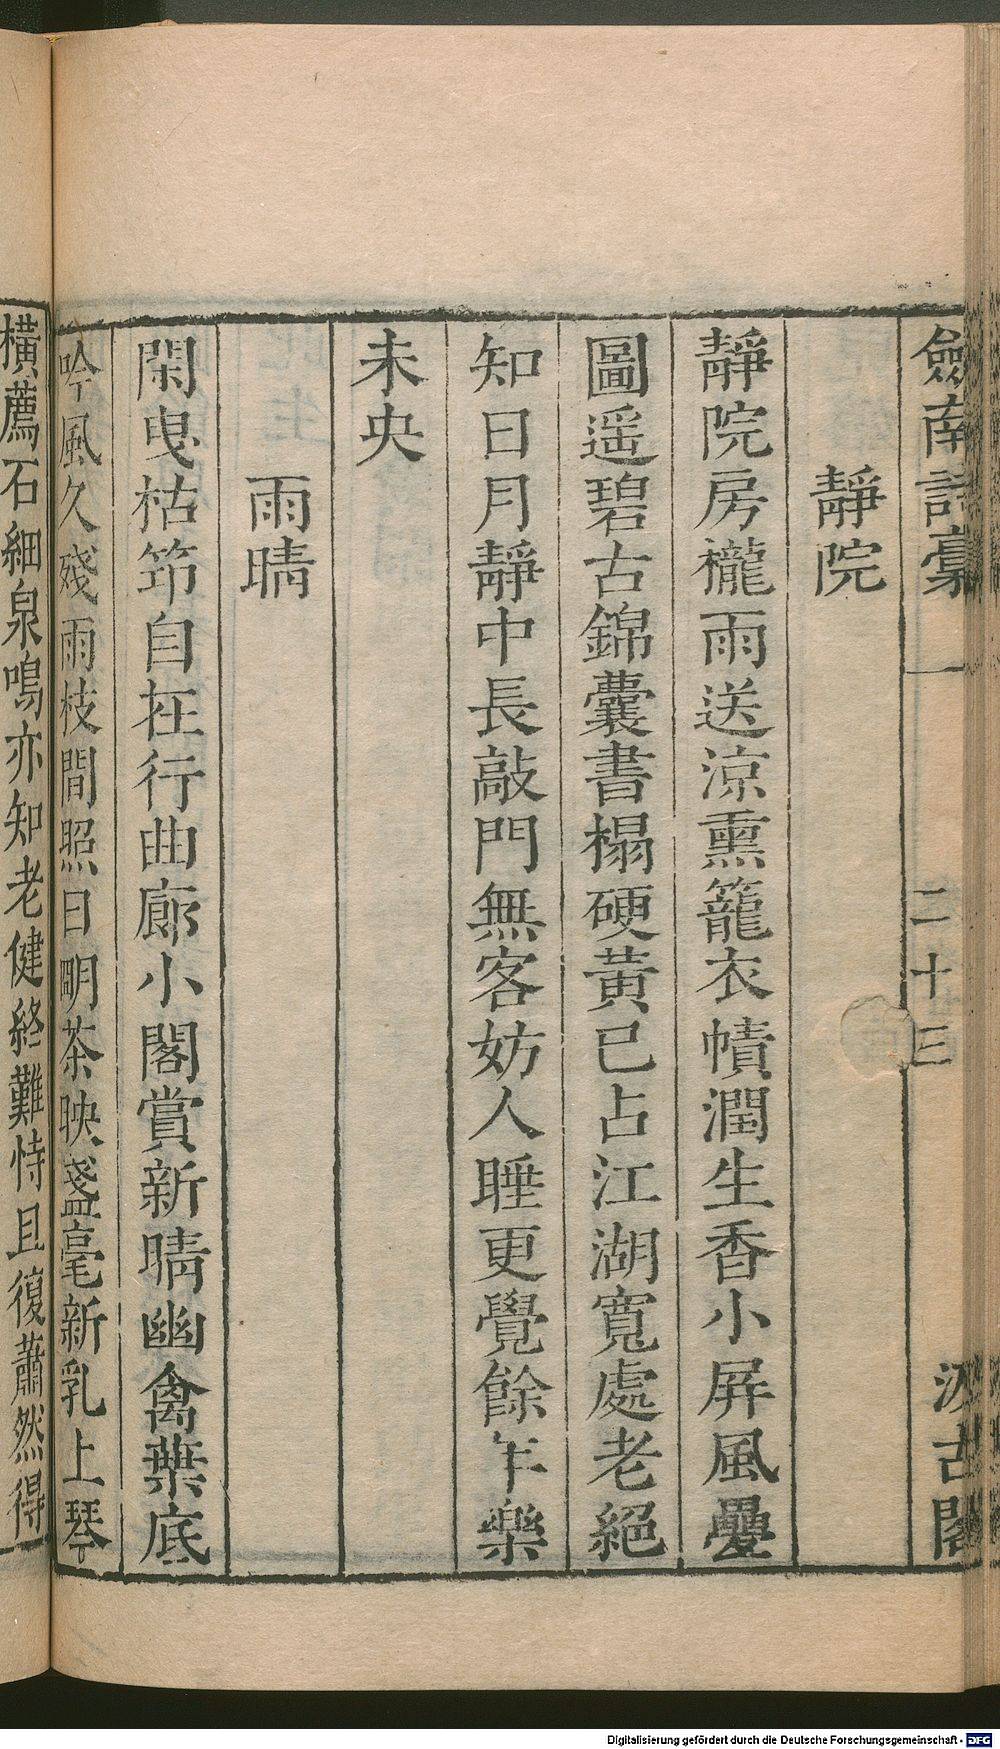 劎南詩稾 一 二十三 汲古閣
靜院
靜院房櫳雨送涼熏籠衣幘潤生香小屏風疊
圖遥碧古錦囊書榻硬黃已占江湖寬處老絕
知日月靜中長敲門無客妨人睡更覺餘年樂
未央
雨晴
閑曳枯笻自在行曲廊小閣賞新晴幽禽葉底
吟風久殘雨枝間照日明茶映盞毫新乳上琴
橫薦石細泉鳴亦知老健終難恃且復蕭然得
Digitalisierung gefördert durch die Deutsche Forschungsgemeinschaft - DFG